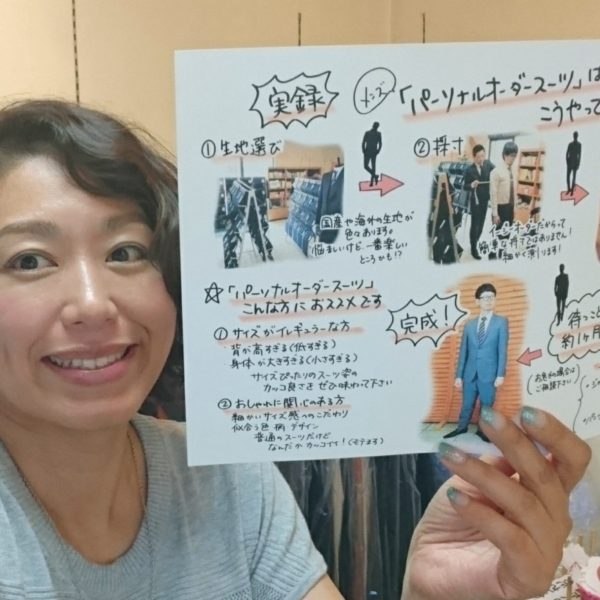 実録
メンズ
「パーソナルオーダースーツ」は
こうやって
①生地選び
国産や海外の生地が
色々あります。
悩ましいけど一番楽しい
ところかも!?
②採寸
イージーオーダーだからって
簡単な採寸ではありません!
細かく測ります!
☆「パーソナルオーダースーツ」
こんな方におススメです
①サイズがイレギュラーな方
背が高すぎる(低すぎる)
身体が大きすぎる(小さすぎる)
サイズぴったりのスーツ姿の
カッコ良さをぜひ味わって下さい
②おしゃれに関心のある方
細かいサイズ感へのこだわり
似合う色・柄・デザイン
普通のスーツだけど
なんだかカッコイイ!(モテます)
完成!
待つこと
約1ヶ月
お急ぎの場合は
ご相談下さい